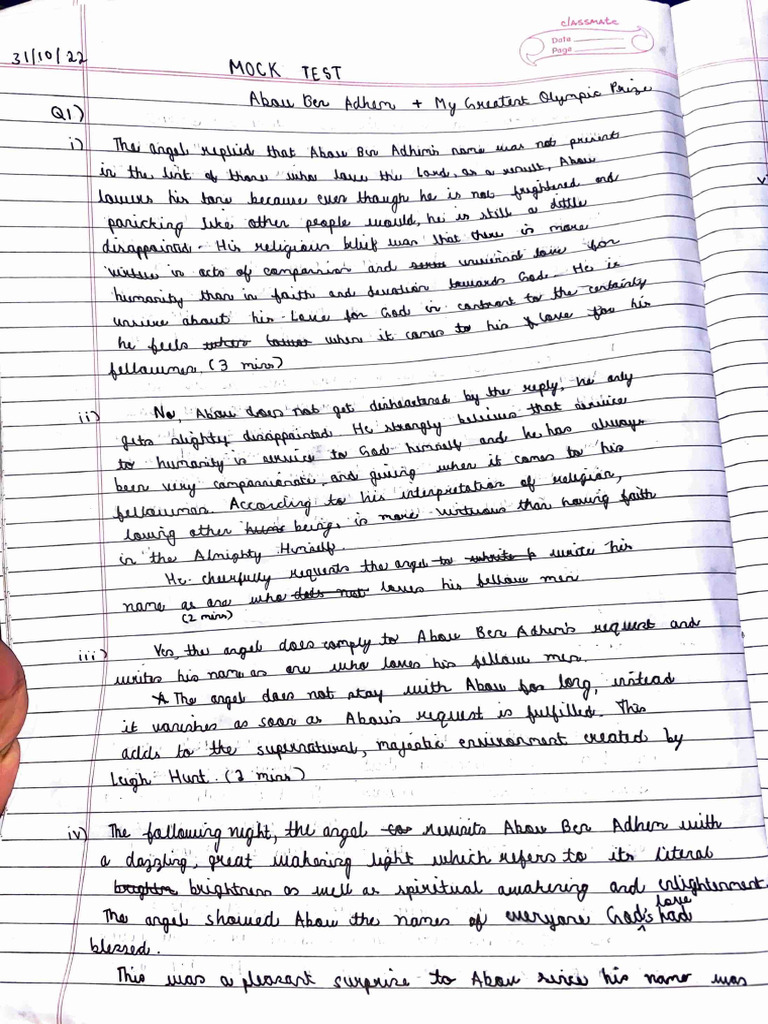 classmate
Date
Page
31/10/22
MOCK TEST
Abou Ben Adhem + My Greatest Olympic Prize
Q1)
i) The angel replied that Abou Ben Adhem's name was not present
in the list of those who love the Lord, as a result, Abou
lowers his tone because even though he is not frightened and
panicking like other people would, he is still a little
disappointed. His religious belief was that there is more
virtue in acts of compassion and universal love for
humanity than in faith and devotion towards God. He is
unsure about his Love for God in contrast to the certainty
he feels when it comes to his love for his
fellowmen. (3 mins)
ii) No, Abou does not get disheartened by the reply, he only
gets slightly disappointed. He strongly believes that service
to humanity is service to God himself and he has always
been very compassionate, and giving when it comes to his
fellowman. According to his interpretation of religion,
loving other beings is more virtuous than having faith
in the Almighty Himself.
He cheerfully requests the angel to write his
name as one who loves his fellow men
(2 mins)
iii) Yes, the angel does comply to Abou Ben Adhem's request and
writes his name as one who loves his fellow men.
The angel does not stay with Abou for long, instead
it vanishes as soon as Abou's request is fulfilled. This
adds to the supernatural, majestic environment created by
Leigh Hunt. (2 mins)
iv) The following night, the angel revisits Abou Ben Adhem with
a dazzling, great wakening light which refers to its literal
brightness as well as spiritual awakening and enlightenment.
The angel showed Abou the names of everyone God's love had
blessed.
This was a pleasant surprise to Abou since his name was